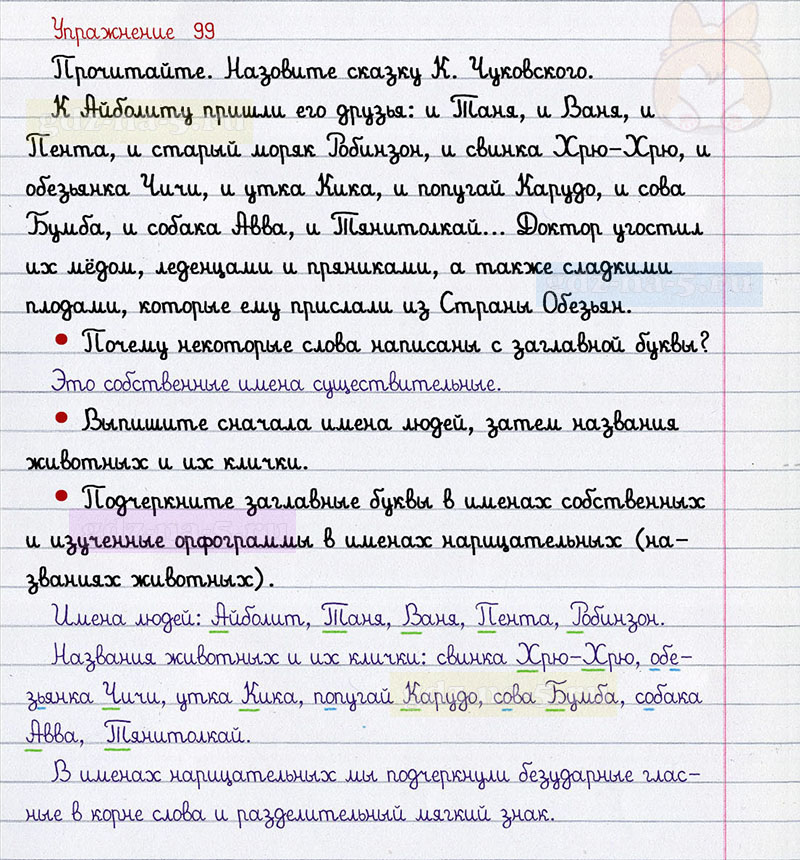 Упражнение 99
Прочитайте. Назовите сказку К. Чуковского.
К Айболиту пришли его друзья: и Таня, и Ваня, и
Пента, и старый моряк Робинзон, и свинка Хрю-Хрю, и
обезьянка Чичи, и утка Кика, и попугай Карудо, и сова
Бумба, и собака Авва, и Тянитолкай... Доктор угостил
их мёдом, леденцами и пряниками, а также сладкими
плодами, которые ему прислали из Страны Обезьян.
• Почему некоторые слова написаны с заглавной буквы?
Это собственные имена существительные.
• Выпишите сначала имена людей, затем названия
животных и их клички.
• Подчеркните заглавные буквы в именах собственных
и изученные орфограммы в именах нарицательных (на-
званиях животных).
Имена людей: Айболит, Таня, Ваня, Пента, Робинзон.
Названия животных и их клички: свинка Хрю-Хрю, обе-
зьянка Чичи, утка Кика, попугай Карудо, сова Бумба, собака
Авва, Тянитолкай.
В именах нарицательных мы подчеркнули безударные глас-
ные в корне слова и разделительный мягкий знак.